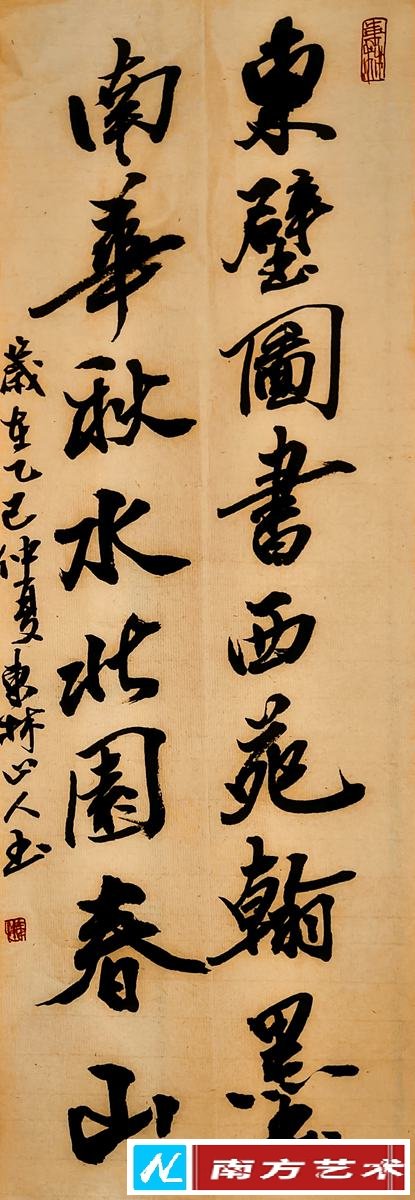 東壁圖書西苑翰墨
南華秋水北園春山
歲在乙巳仲夏東林山人書
南方艺术